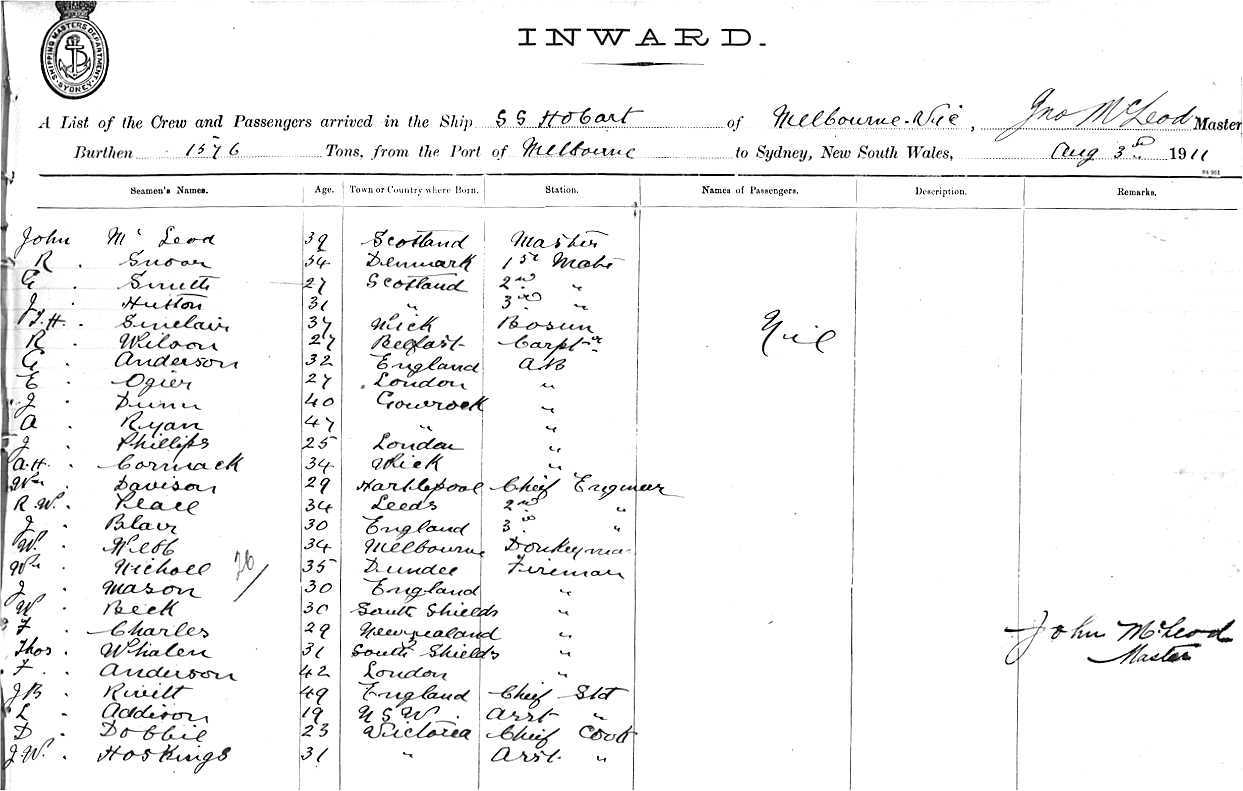 SHIPPING MASTERS DEPARTMENT
SYDNEY
INWARD.
A List of the Crew and Passengers arrived in the Ship SS Hobart of Melbourne-Vic, Jno McLeod Master
Burthen 1576 Tons, from the Port of Melbourne to Sydney, New South Wales, Aug 3rd 1911
Seamen's Names. Age. Town or Country where Born. Station. Names of Passengers. Description. Remarks.
John Mc Leod 39 Scotland Master
R. 34 Denmark 1st Mate
G. Smith 27 Scotland 2nd "
J. Hutton 31 " 3rd "
J.H. Sinclair 37 Wick Bosun
R. Wilson 27 Belfast Carptr Nil
G. Anderson 32 England AB
E. Ogier 27 London "
J. Dunn 40 Gourock "
A. Ryan 47 " "
J. Phillips 25 London "
A.H. Cormack 34 Wick "
Wm. Davison 29 Hartlepool Chief Engineer
R.W. Peace 34 Leeds 2nd "
J. Blair 30 England 3rd "
W. Webb 34 Melbourne Donkeyman
Wm. Nicholl 26/ 35 Dundee Fireman
J. Mason 30 England "
W. Beck 30 South Shields "
F. Charles 29 New Zealand " John McLeod
Thos. Whalen 31 South Shields " Master
F. Anderson 42 London "
J B. Rivitt 49 England Chief Std
L. Addison 19 N S W. Asst "
D. Dobbie 23 Victoria Chief Cook
J.W. Hoskings 31 " Asst. "